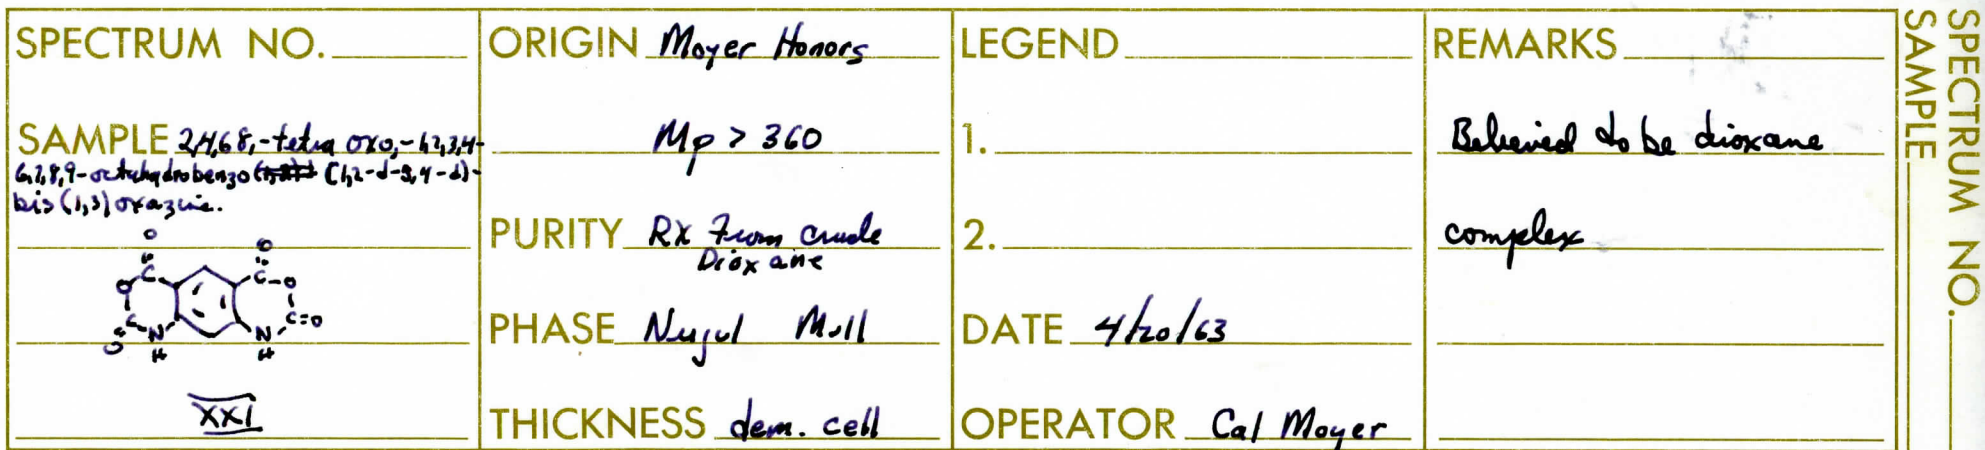 SPECTRUM NO.
SAMPLE 2,4,6,8,-tetra oxo,-1,2,3,4-
6,7,8,9-octahydrobenzo [1,2-d-3,4-d)-
bis (1,3) oxazine.
O O
C C
O O
C N N C=O
O H H
XXI
ORIGIN Moyer Honors
Mp > 360
PURITY RX From crude
Dioxane
PHASE Nujul Mull
THICKNESS dem. cell
LEGEND
1.
2.
DATE 4/20/63
OPERATOR Cal Moyer
REMARKS
Believed to be dioxane
complex
SPECTRUM NO.
SAMPLE